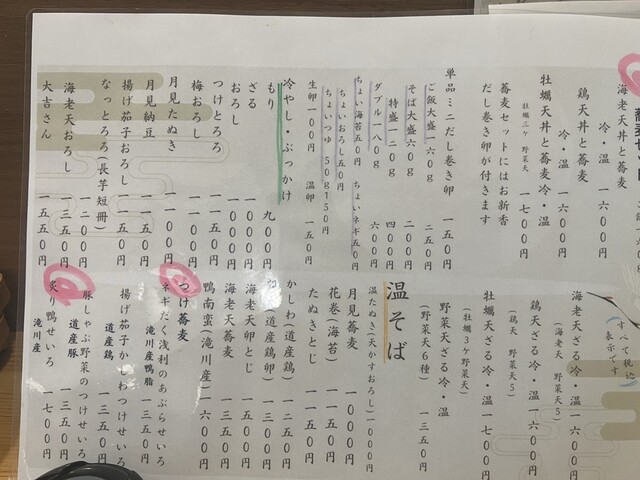 蕎麦セット
海老天丼と蕎麦
冷・温 一六00円
鶏天丼と蕎麦
冷・温 一六00円
牡蠣天丼と蕎麦冷・温
牡蠣三ケ 野菜天 一七00円
蕎麦セットにはお新香
だし巻き卵が付きます
単品ミニだし巻き卵 一五0円
ご飯大盛一六0g 二五0円
そば大盛六0g 二00円
特盛一二0g 四00円
ダブル一八0g 六00円
ちょい海苔五0円 ちょいネギ五0円
ちょいおろし五0円
ちょいつゆ 50g150円
生卵一00円 温卵 一五0円
冷やし・ぶっかけ
もり 九00円
ざる 一000円
おろし 一000円
つけとろろ 一一五0円
梅おろし 一一00円
月見たぬき 一一00円
月見納豆 一一五0円
揚げ茄子おろし 一一五0円
なっとろろ(長芋短冊)
一二00円
海老天おろし 一三五0円
大吉さん 一五五0円
すべて税込
表示です
海老天ざる冷・温 一六00円
(海老天 野菜天5)
鶏天ざる冷・温 一六00円
(鶏天 野菜天5)
牡蠣天ざる冷・温 一七00円
(牡蠣3ケ野菜天)
野菜天ざる冷・温
(野菜天6種) 一三五0円
温そば
温たぬき(天かすおろし)一000円
月見蕎麦 一000円
花巻(海苔) 一一五0円
たぬきとじ 一一五0円
かしわ(道産鶏) 一二五0円
(道産鶏卵) 一三00円
海老天卵とじ 一五五0円
海老天蕎麦 一三五0円
鴨南蛮(滝川産) 一六00円
つけ蕎麦
ネギだく浅利のあぶらせいろ
滝川産鴨脂 一三五0円
揚げ茄子かしわつけせいろ
道産鶏 一三五0円
豚しゃぶ野菜のつけせいろ
道産豚 一三五0円
炙り鴨せいろ 一七00円
滝川産